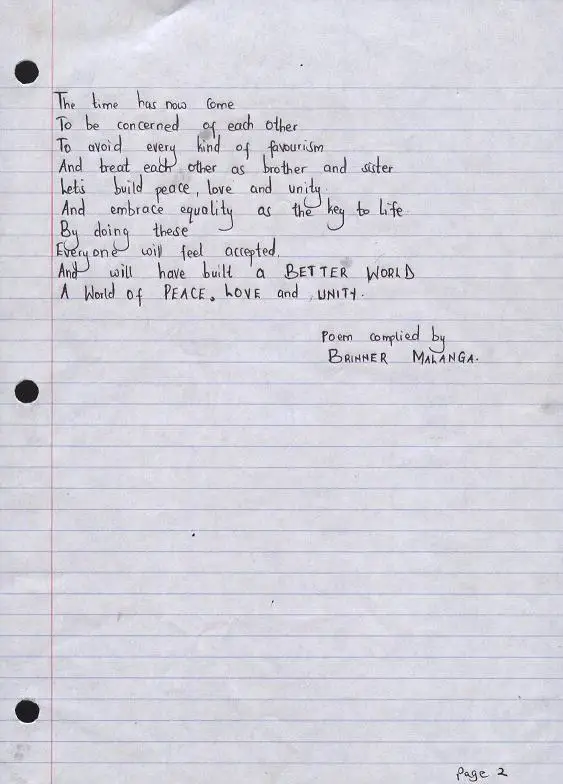 The time has now come
To be concerned of each other
To avoid every kind of favourism
And treat each other as brother and sister
Lets build peace, love and unity.
And embrace equality as the key to life.
By doing these
Everyone will feel accepted.
And will have built a BETTER WORLD
A World of PEACE, LOVE and UNITY.
Poem complied by
BRINNER MALANGA.
Page 2